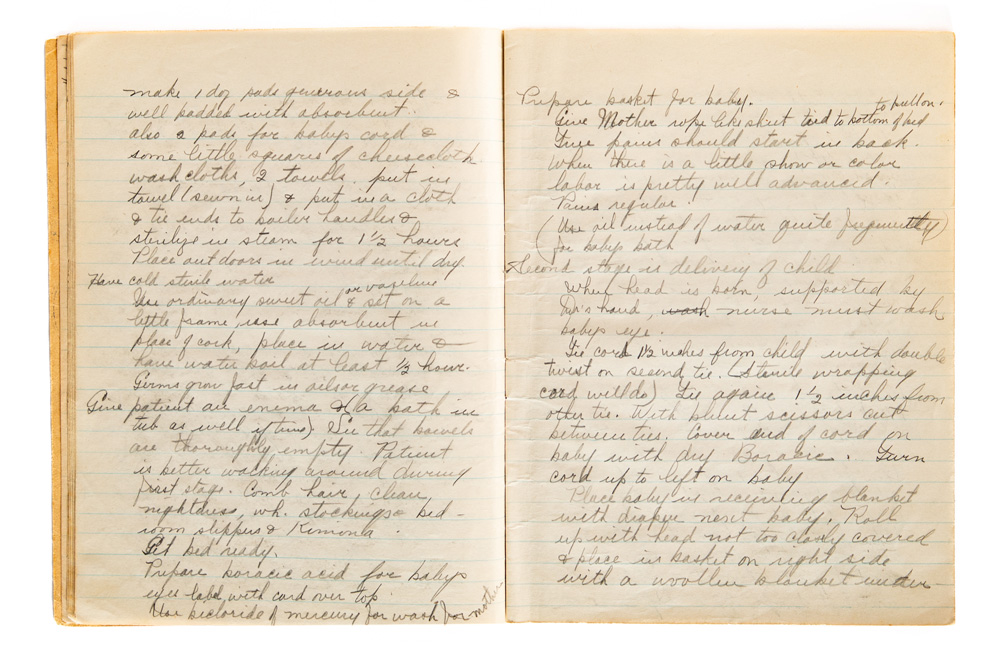 make 1 doz pads generous side &
well padded with absorbent.
also 2 pads for babys cord &
some little squares of cheesecloth
washcloths, 2 towels. put in
towel (sewn in) & put in a cloth
& tie ends to boiler handles &
sterilize in steam for 1 1/2 hours
Place out doors in wind until dry.
Have cold sterile water
or vaseline
Use ordinary sweet oil & set on a
little frame, use absorbent in
place of cork, place in water &
have water boil at least 1/2 hour.
Germs grow fast in oils or grease
Give patient an enema & (a bath in
tub as well if time) See that bowels
are thoroughly empty. Patient
is better walking around during
first stage. Comb hair, clean
nightdress, wh. stockings & bed-
room slippers & Kimona.
Get bed ready.
Prepare boracic acid for babys
eyes label, with card over top
Use bicloride of mercury for wash for mother
Prepare basket for baby.
to pull on.
Give Mother rope like skirt tied to bottom of bed
True pains should start in back.
When there is a little show or color
labor is pretty well advanced.
Pains regular.
(Use oil instead of water quite frequently)
for baby bath
Second stage is delivery of child
When head is born, supported by
Dr's hand, wash nurse must wash
babys eye.
Tie cord 1 1/2 inches from child with double
twist on second tie. (Sterile wrapping
cord will do) Tie again 1 1/2 inches from
other tie. With blunt scissors cut
between ties. Cover end of cord on
baby with dry Boracic. Turn
cord up to left on baby
Place baby in receiving blanket
with diaper next baby. Roll
up with head not too closly covered
& place in basket on right side
with a woollen blanket under-